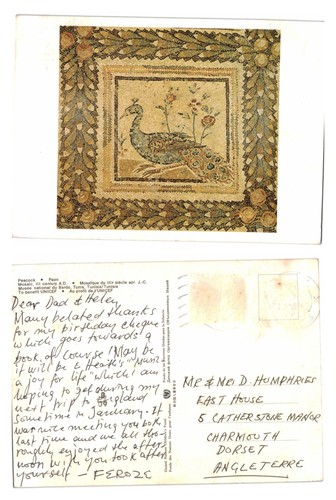 Peacock • Paon
Mosaic, III century A.D. • Mosaïque du IIIe siècle apr. J.-C.
Musée national du Bardo, Tunis, Tunisia/Tunisie
To benefit UNICEF • Au profit de l'UNICEF
Dear Dad & Heley,
Many belated thanks
for my birthday cheque
which goes towards a
book, of course! May be
it will be E Heath's "Music
a joy for life" which I am
hoping to get during my
next trip to England
sometime in January. It
was nice meeting you both
last time and we all tho-
roughly enjoyed the after
noon with you. Look after
yourself — FEROZE
MR & MRS D. HUMPHRIES
EAST HOUSE
5 CATHERSTONE MANOR
CHARMOUTH
DORSET
ANGLETERRE